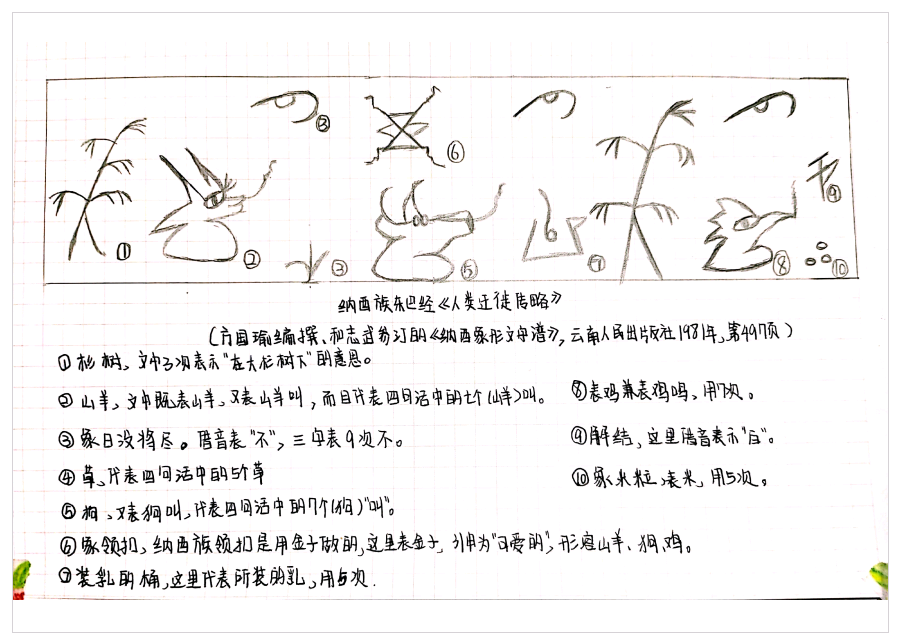 ① ② ③ ③ ⑤ ⑥ ⑦ ⑧ ⑨ ⑩
纳西族东巴经《人类迁徒传略》
(方国瑜编撰、和志武参订的《纳西象形文字谱》，云南人民出版社1981年，第497页)
①杉树，文中3次表示“在大杉树下”的意思。
②山羊，文中既表山羊，又表山羊叫，而且代表四句话中的七个(山羊)叫。
⑧表鸡兼表鸡鸣，用7次。
③象日没将尽。借音表“不”，三字表9次不。
⑨解结，这里借音表示“白”。
④草，代表四句话中的5个草
⑩象米粒，表米，用5次。
⑤狗，又表狗叫，代表四句话中的7个(狗)“叫”。
⑥象领扣，纳西族领扣是用金子做的，这里表金子，引申为“可爱的”，形容山羊、狗、鸡。
⑦装乳的桶，这里代表所装的乳，用5次.